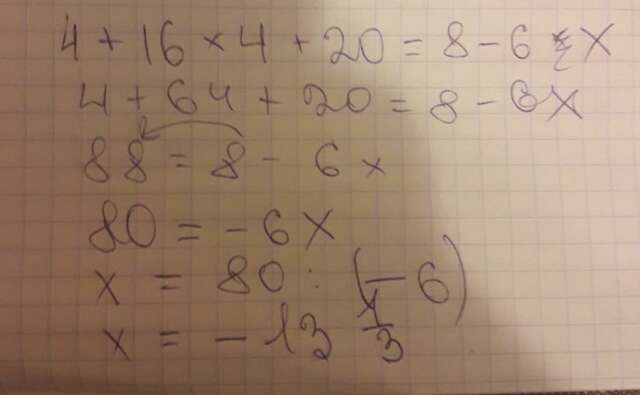 4 + 16 × 4 + 20 = 8 - 6 x
4 + 64 + 20 = 8 - 6x
88 = 8 - 6x
80 = -6x
x = 80 : (-6)
x = -13 1/3